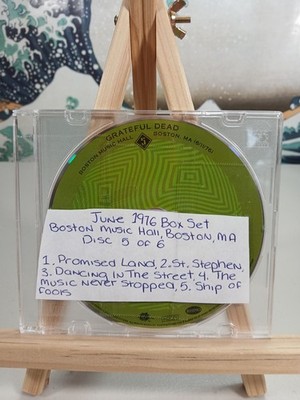 GRATEFUL DEAD
BOSTON MUSIC HALL
5
BOSTON, MA
June 1976 Box Set
Boston Music Hall, Boston, MA
Disc 5 of 6
1. Promised Land, 2. St. Stephen,
3. Dancing In The Street, 4. The
Music Never Stopped, 5. Ship of
Fools